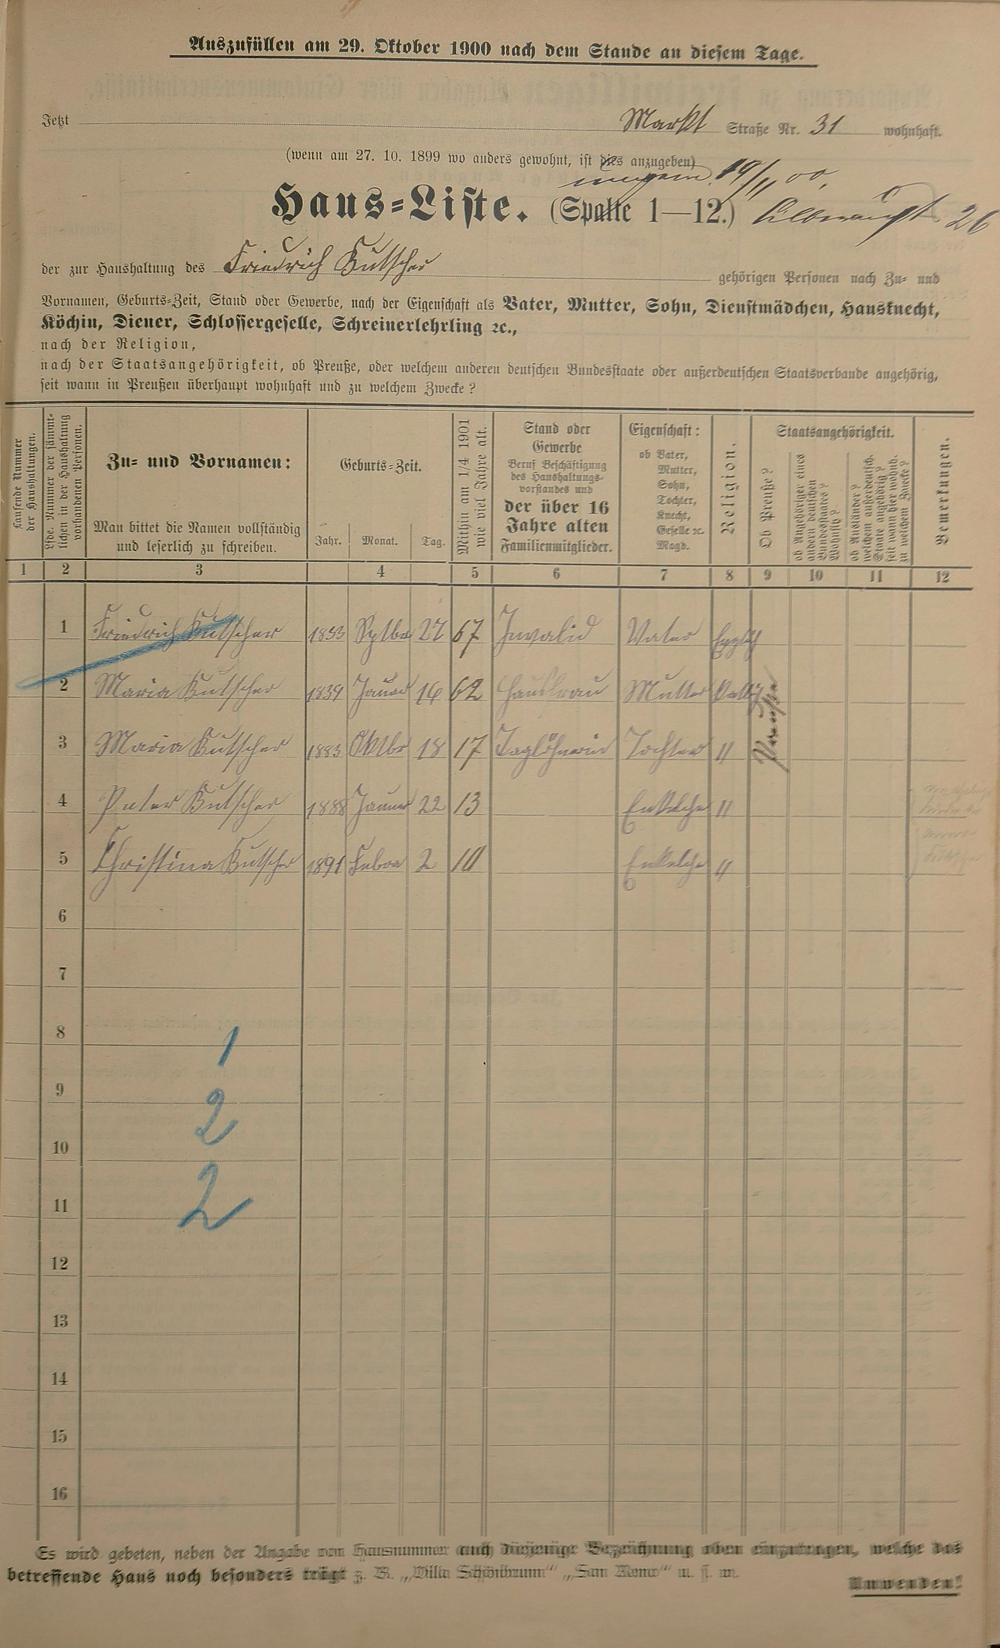 Auszufüllen am 29. Oktober 1900 nach dem Stande an diesem Tage.
Jetzt Markt Straße Nr. 31 wohnhaft.
(wenn am 27. 10. 1899 wo anders gewohnt, ist dies anzugeben)
19/11 00.
Haus-Liste. (Spalte 1—12.) 26
der zur Haushaltung des Friedrich Kutscher gehörigen Personen nach Zu- und
Vornamen, Geburts-Zeit, Stand oder Gewerbe, nach der Eigenschaft als Vater, Mutter, Sohn, Dienstmädchen, Hausknecht,
Köchin, Diener, Schlossergeselle, Schreinerlehrling ꝛc.,
nach der Religion,
nach der Staatsangehörigkeit, ob Preuße, oder welchem anderen deutschen Bundesstaate oder außerdeutschen Staatsverbande angehörig,
seit wann in Preußen überhaupt wohnhaft und zu welchem Zwecke?
Laufende Nummer der Haushaltungen.
Lfde. Nummer der sämmtlichen in der Haushaltung vorhandenen Personen.
Zu- und Vornamen:
Man bittet die Namen vollständig
und leserlich zu schreiben.
Geburts-Zeit.
Jahr. Monat. Tag.
Mithin am 1/4 1901 wie viel Jahre alt.
Stand oder
Gewerbe
Beruf Beschäftigung
des Haushaltungs-
vorstandes und
der über 16
Jahre alten
Familienmitglieder.
Eigenschaft:
ob Vater,
Mutter,
Sohn,
Tochter,
Knecht,
Geselle ꝛc.
Magd.
Religion.
Staatsangehörigkeit.
Ob Preuße?
ob Angehöriger eines andern deutschen Bundesstaates? Wohnsitz?
ob Ausländer? welchem außerdeutsch. Staate angehörig? seit wann hier wohnh. zu welchem Zwecke?
Bemerkungen.
1 2 3 4 5 6 7 8 9 10 11 12
1 Friedrich Kutscher 1833 Septbr 27 67 Invalid Vater
2 Maria Kutscher 1839 Januar 16 62 Hausfrau Mutter Kath
Preuße
3 Maria Kutscher 1883 Oktbr 18 17 Taglöhnerin Tochter "
4 Peter Kutscher 1888 Januar 22 13 Enkelche "
5 Christina Kutscher 1891 Febra 2 10 Enkelche "
6
7
8
1
9
2
10
2
11
12
13
14
15
16
Es wird gebeten, neben der Angabe von Hausnummer auch diejenige Bezeichnung oben einzutragen, welche das
betreffende Haus noch besonders trägt z. B. „Villa Schönbrunn“ „San Remo“ u. s. w.
Umwenden!